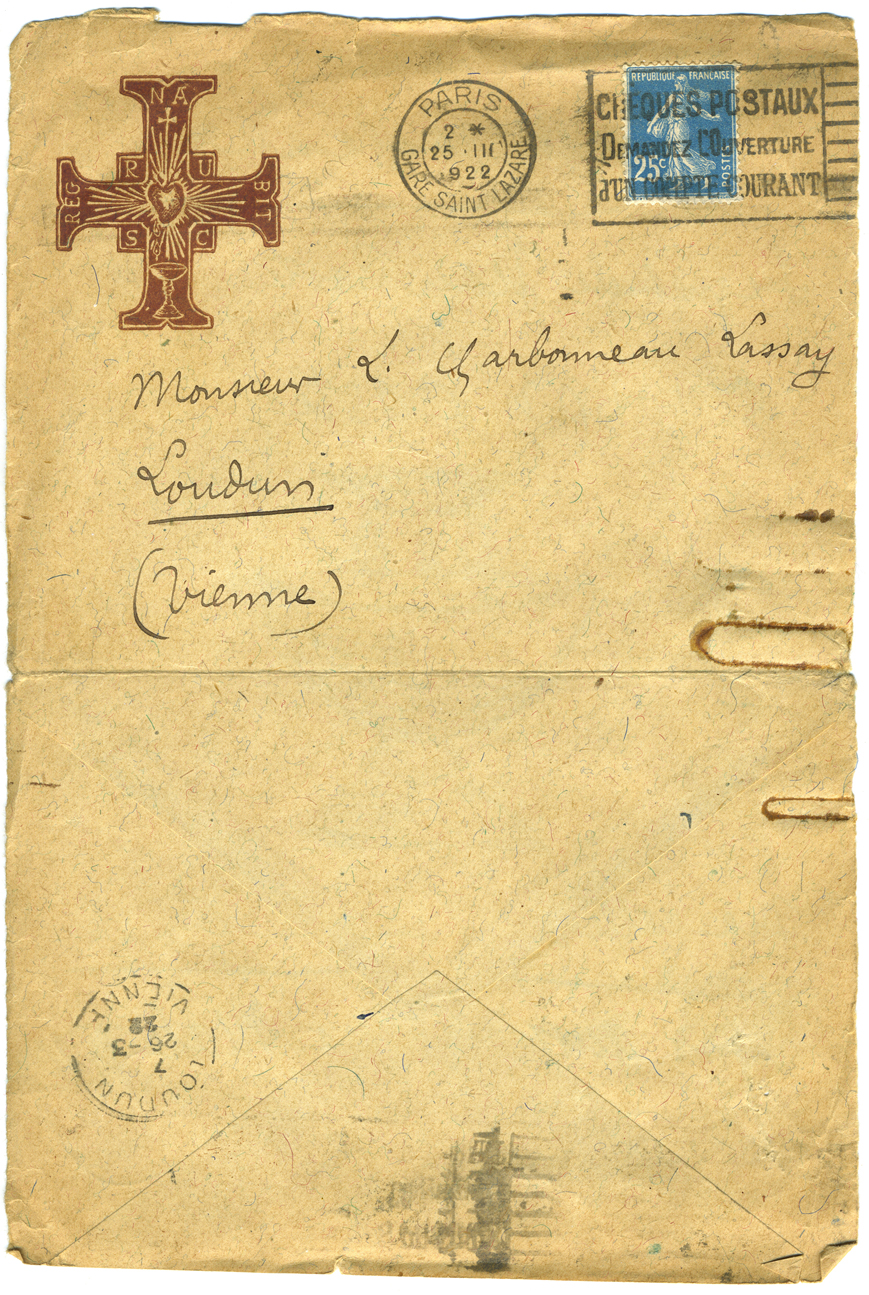 NA
R U
REG BIT
S C
PARIS
2 *
25 III
1922
GARE SAINT LAZARE
REPUBLIQUE FRANÇAISE
25c
POSTES
CHEQUES POSTAUX
DEMANDEZ L'OUVERTURE
d'UN COMPTE COURANT
Monsieur L. Charbonneau Lassay
Loudun
(Vienne)
LOUDUN
7
26-3
22
VIENNE